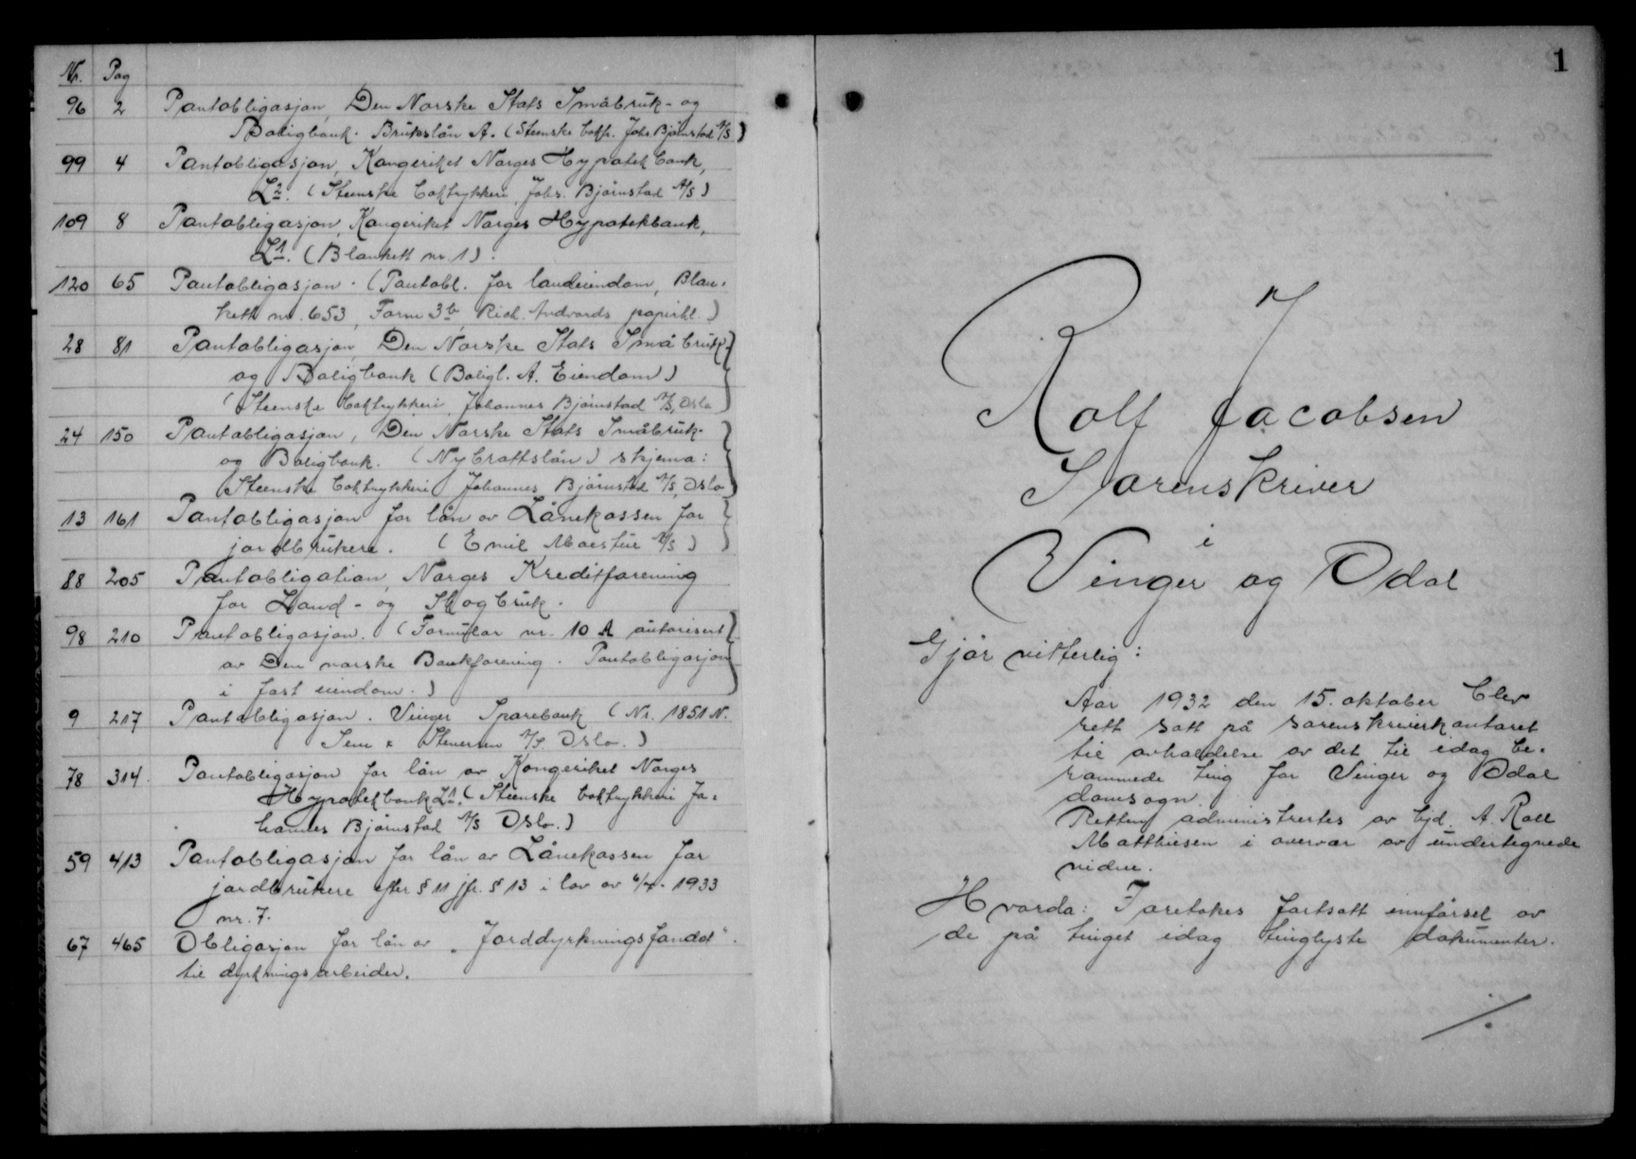 Nr. Pag
96 2 Pantobligasjon, Den Norske Stats Småbruk- og
Boligbank. Brukslån A. (Steenske boktr. Johs. Bjørnstad A/S)
99 4 Pantobligasjon, Kongeriket Norges Hypotekbank,
L2. (Steenske boktrykkeri, Johs. Bjørnstad A/S)
109 8 Pantobligasjon, Kongeriket Norges Hypotekbank,
L1. (Blankett nr. 1).
120 65 Pantobligasjon. (Pantobl. for landeiendom, Blan-
kett nr. 653, Form 3b, Rich. Andvords papirhl.)
28 81 Pantobligasjon, Den Norske Stats Småbruk-
og Boligbank (Boligl. A. Eiendom)
(Steenske boktrykkeri Johannes Bjørnstad A/S, Oslo
24 150 Pantobligasjon, Den Norske Stats Småbruk-
og Boligbank. (Nybrottslån) skjema:
Steenske boktrykkeri Johannes Bjørnstad A/S, Oslo
13 161 Pantobligasjon for lån av Lånekassen for
jordbrukere. (Emil Moestue A/S)
88 205 Pantobligation, Norges Kreditforening
for Land- og Skogbruk.
98 210 Pantobligasjon. (Formular nr. 10 A autorisert
av Den norske Bankforening. Pantobligasjon
i fast eiendom.)
9 217 Pantobligasjon. Vinger Sparebank (Nr. 1851 N.
Sem & Stenersen A/S Oslo.)
78 314. Pantobligasjon for lån av Kongeriket Norges
Hypotekbank L1. (Steenske boktrykkeri Jo-
hannes Bjørnstad A/S Oslo.)
59 413 Pantobligasjon for lån av Lånekassen for
jordbrukere efter § 11 jfr. § 13 i lov av 6/4-1933
nr. 7.
67 465 Obligasjon for lån av "Jorddyrkningsfondet"
til dyrkningsarbeider.
1
Rolf Jacobsen
Sorenskriver
i
Vinger og Odal
Gjør vitterlig:
Aar 1932 den 15. oktober blev
rett satt på sorenskriverkontoret
til avholdelse av det til idag be-
rammede ting for Vinger og Odal
domsogn.
Retten administrertes av bjd. A. Roll
Matthiesen i overvær av undertegnede
vidne.
Hvorda: Foretokes fortsatt innførsel av
de på tinget idag tinglyste dokumenter.
./.